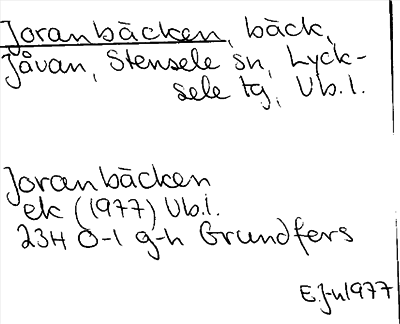 Joranbäcken, bäck,
Jåvan, Stensele sn, Lyck-
sele tg, Vb.l.
Joranbäcken
ek (1977) Vb.l.
23H 0-1 g-h Grundfors
E.J-n1977